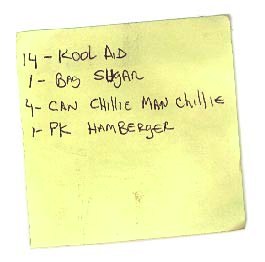 14 - KOOL AID
1 - BAG SUGAR
4 - CAN CHillie MAN Chillie
1 - PK HAMBERGER